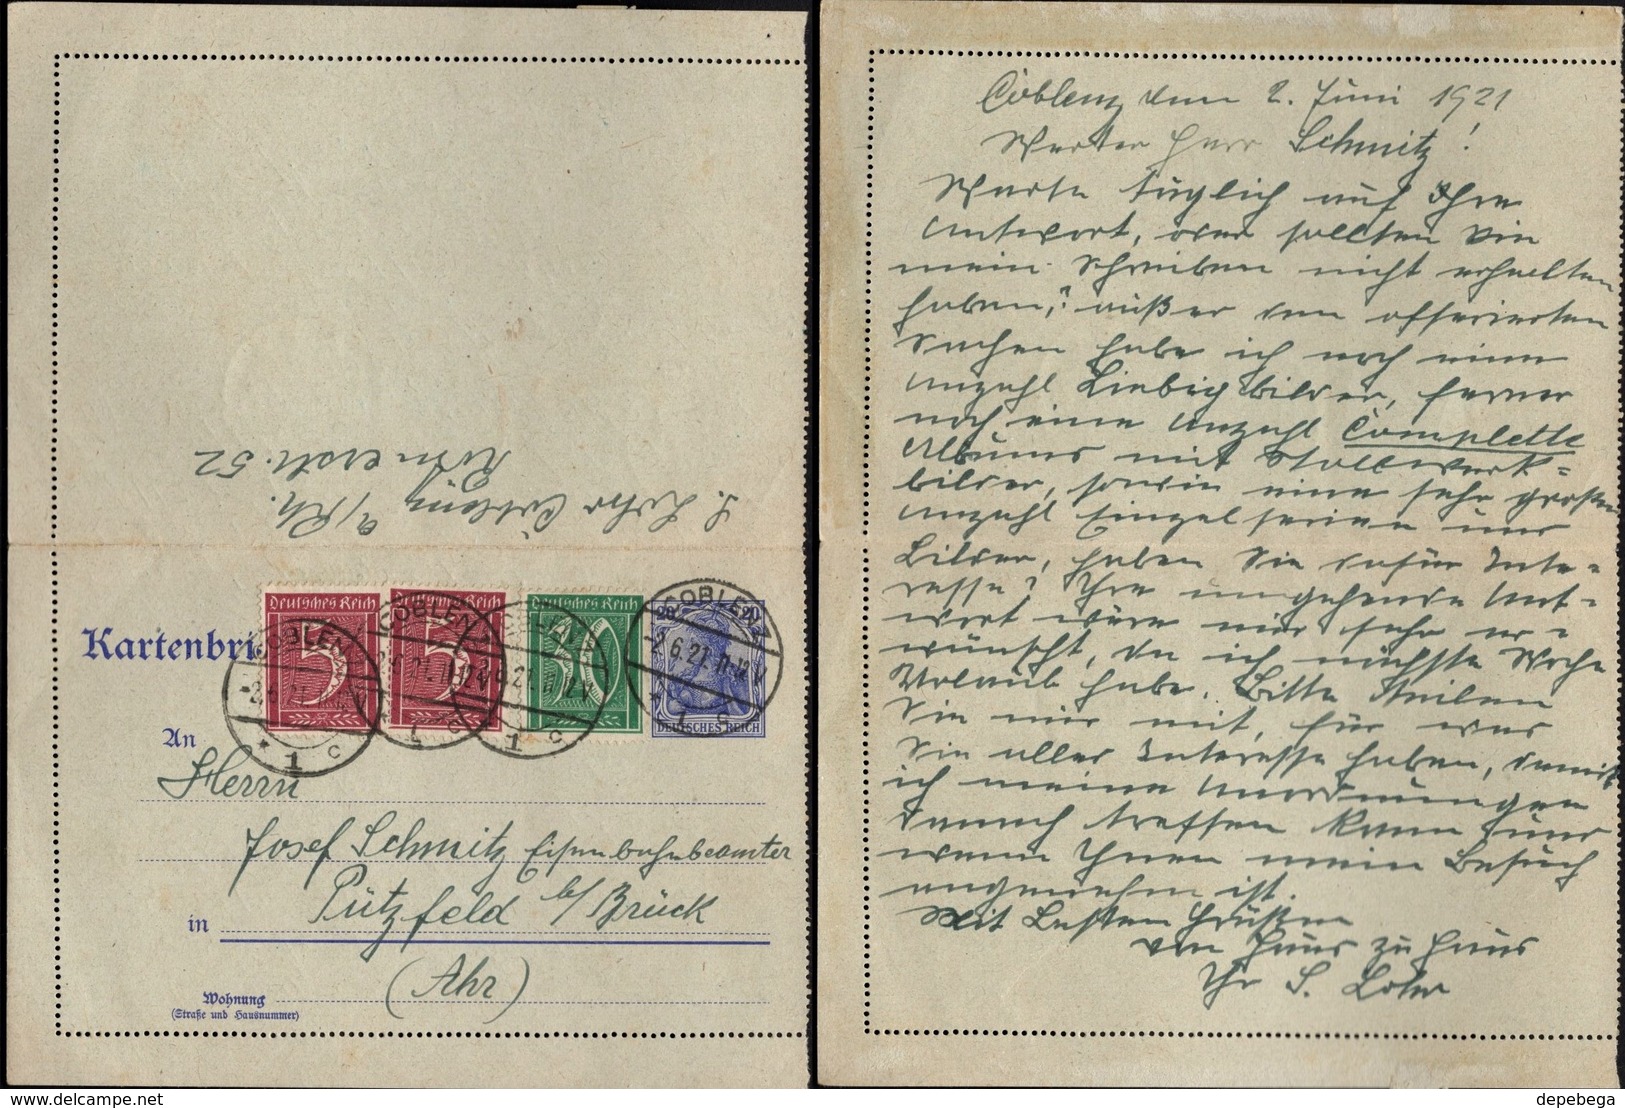 S. Lohr Coblenz a/Rh.
Römerstr. 52
Kartenbrief
Deutsches Reich
5
Deutsches Reich
5
Deutsches Reich
20 20
DEUTSCHES REICH
COBLENZ
-2.6.21. 11-12V
* 1 c
An
Herrn
Josef Schmitz Eisenbahnbeamter
in Pützfeld b/Brück
(Ahr)
Wohnung
(Straße und Hausnummer)
Coblenz den 2. Juni 1921
Werter Herr Schmitz!
Warte täglich auf Ihre
Antwort, oder sollten Sie
mein Schreiben nicht erhalten
haben,? außer den offerierten
Sachen habe ich noch eine
Anzahl Liebigbilder, ferner
noch eine Anzahl Complette
Albums mit Stollwerk=
bilder, sowie eine sehr große
Anzahl Einzelserien und
Bilder, haben Sie dafür Inte=
resse? Ihre umgehende Ant=
wort wäre mir sehr er=
wünscht, da ich nächste Woche
Urlaub habe. Bitte teilen
Sie mir mit, für was
Sie alles Interesse haben, damit
ich meine Anordnungen
danach treffen kann und
wann Ihnen mein Besuch
angenehm ist.
Mit besten Grüßen
von Haus zu Haus
Ihr S. Lohr
www.delcampe.net
depebega